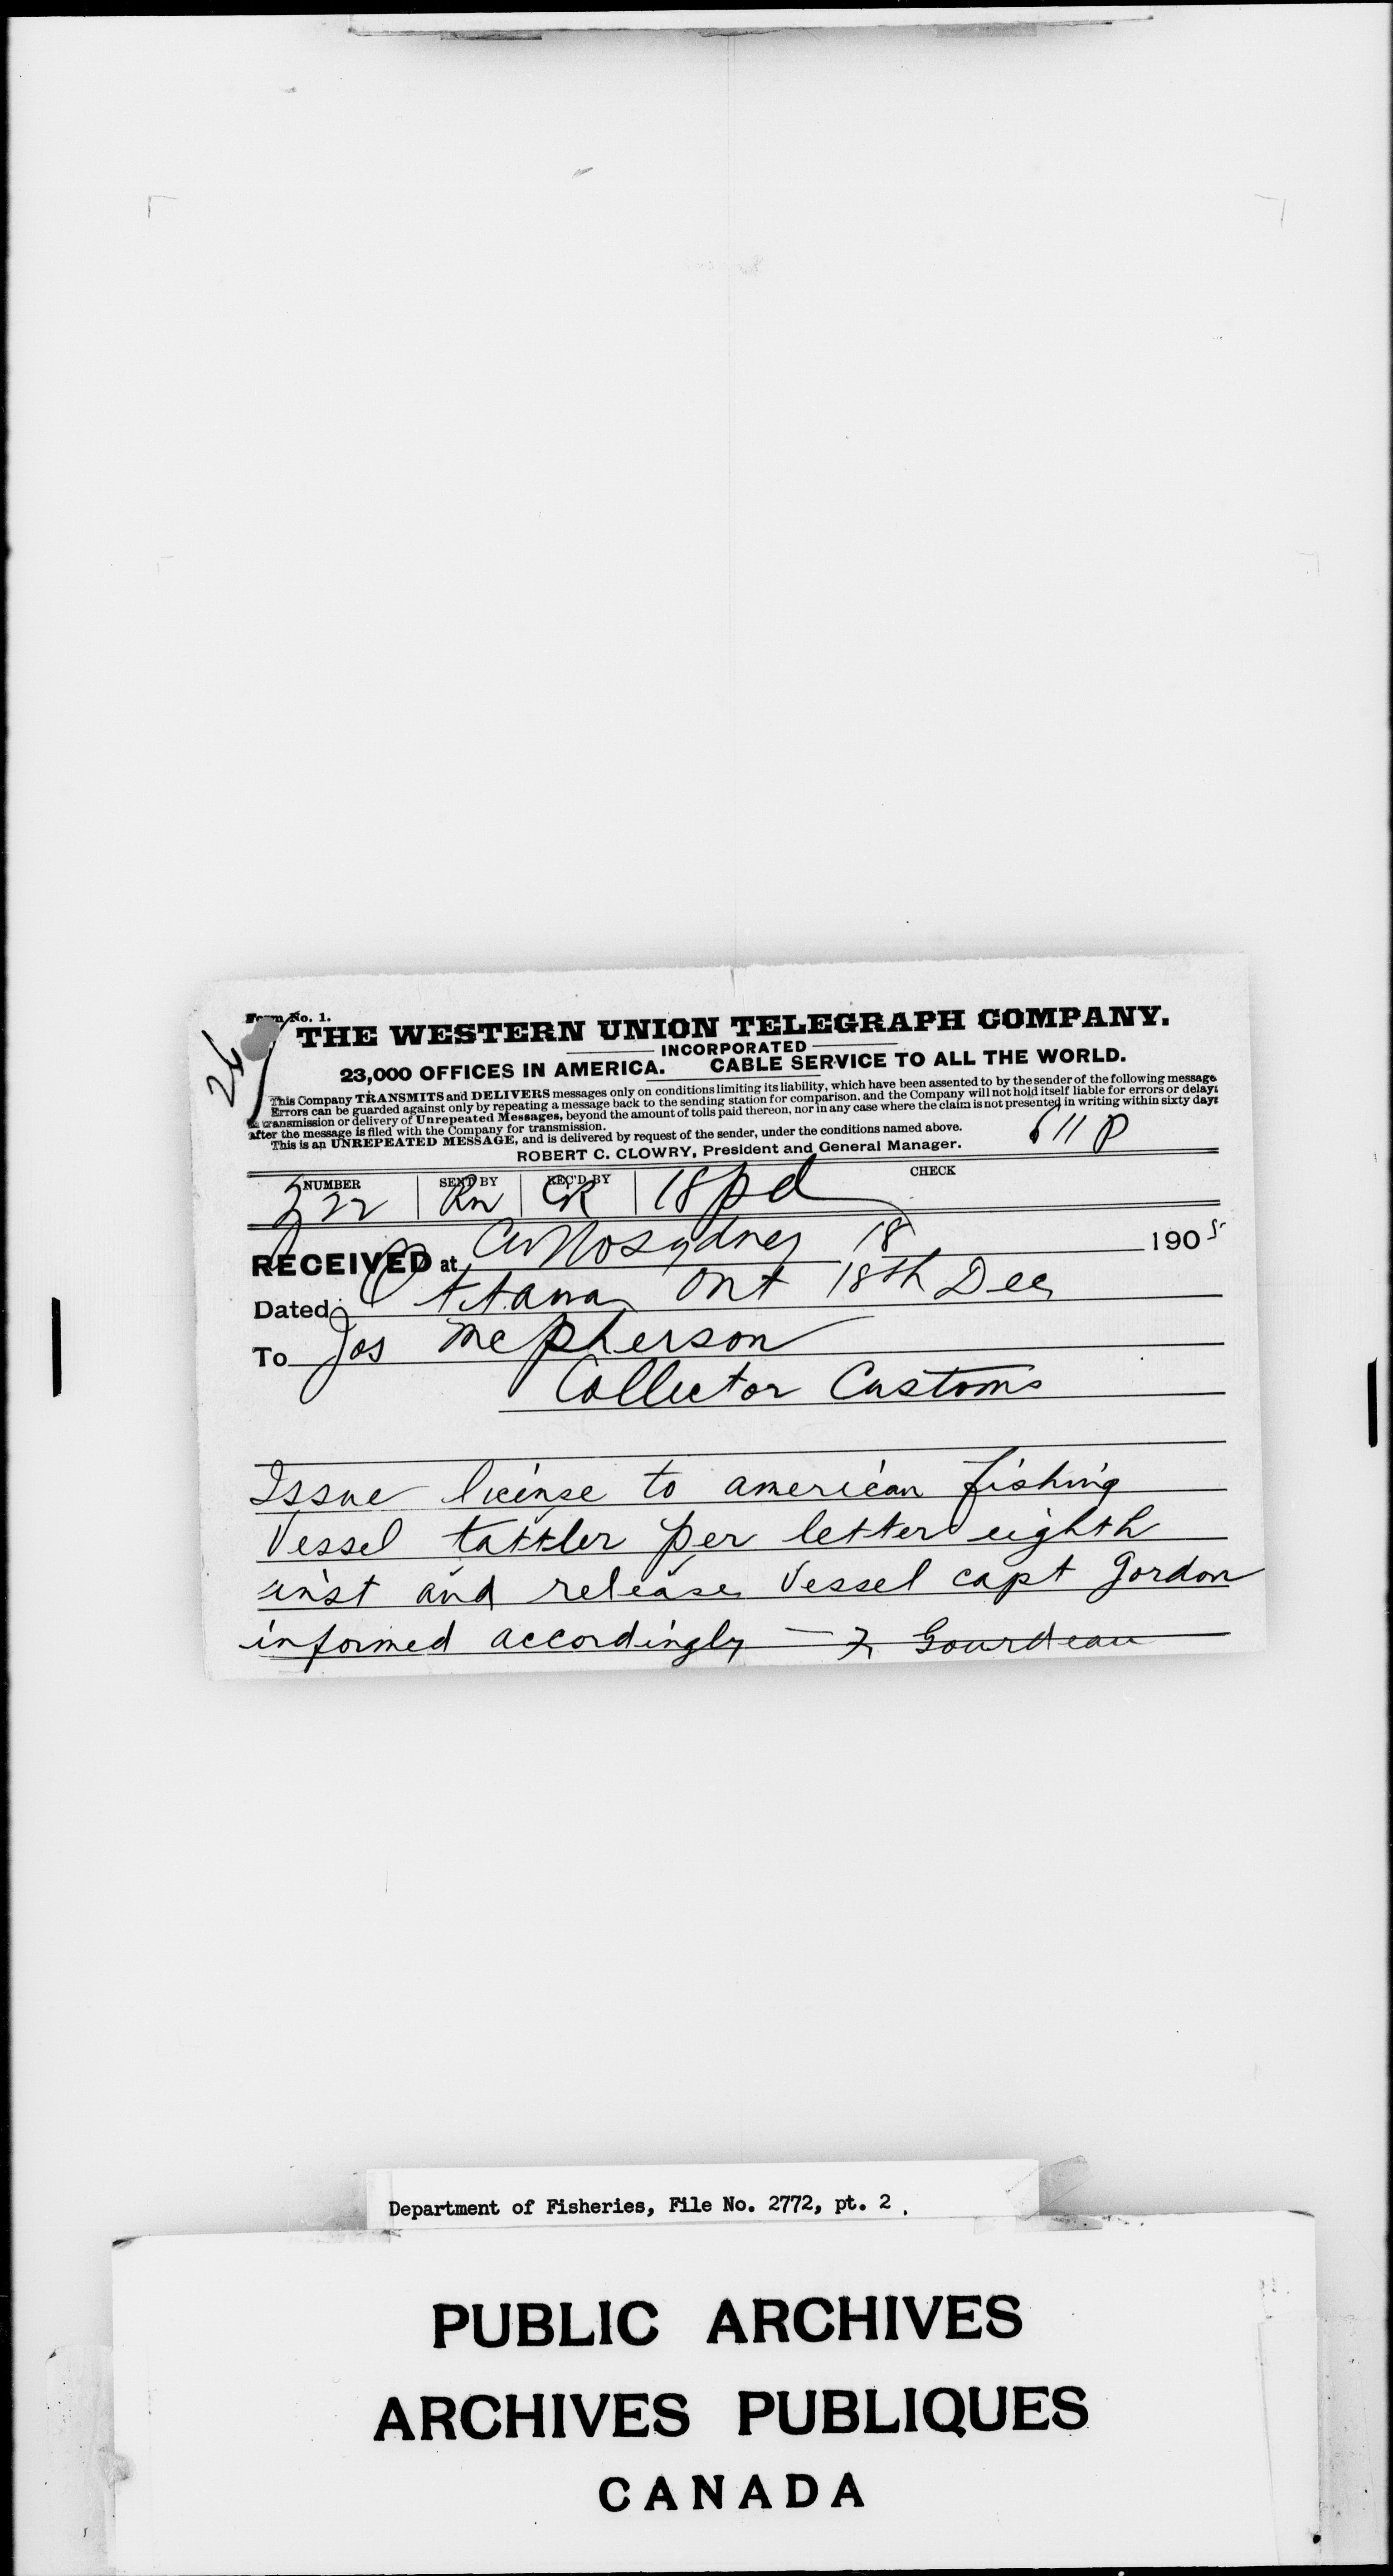 Form No. 1.
THE WESTERN UNION TELEGRAPH COMPANY.
INCORPORATED
23,000 OFFICES IN AMERICA. CABLE SERVICE TO ALL THE WORLD.
This Company TRANSMITS and DELIVERS messages only on conditions limiting its liability, which have been assented to by the sender of the following message
Errors can be guarded against only by repeating a message back to the sending station for comparison, and the Company will not hold itself liable for errors or delays
in transmission or delivery of Unrepeated Messages, beyond the amount of tolls paid thereon, nor in any case where the claim is not presented in writing within sixty days
after the message is filed with the Company for transmission.
This is an UNREPEATED MESSAGE, and is delivered by request of the sender, under the conditions named above.
611 P
ROBERT C. CLOWRY, President and General Manager.
NUMBER SENT BY REC'D BY CHECK
222 Rn CR 18 pd
RECEIVED at Nosydney 18 1905
Dated Ottawa Ont 18th Dec
To Jos McPherson
Collector Customs
Issue license to american fishing
Vessel tattler per letter eighth
inst and release Vessel capt Gordon
informed accordingly — F Gourdeau
Department of Fisheries, File No. 2772, pt. 2.
PUBLIC ARCHIVES
ARCHIVES PUBLIQUES
CANADA